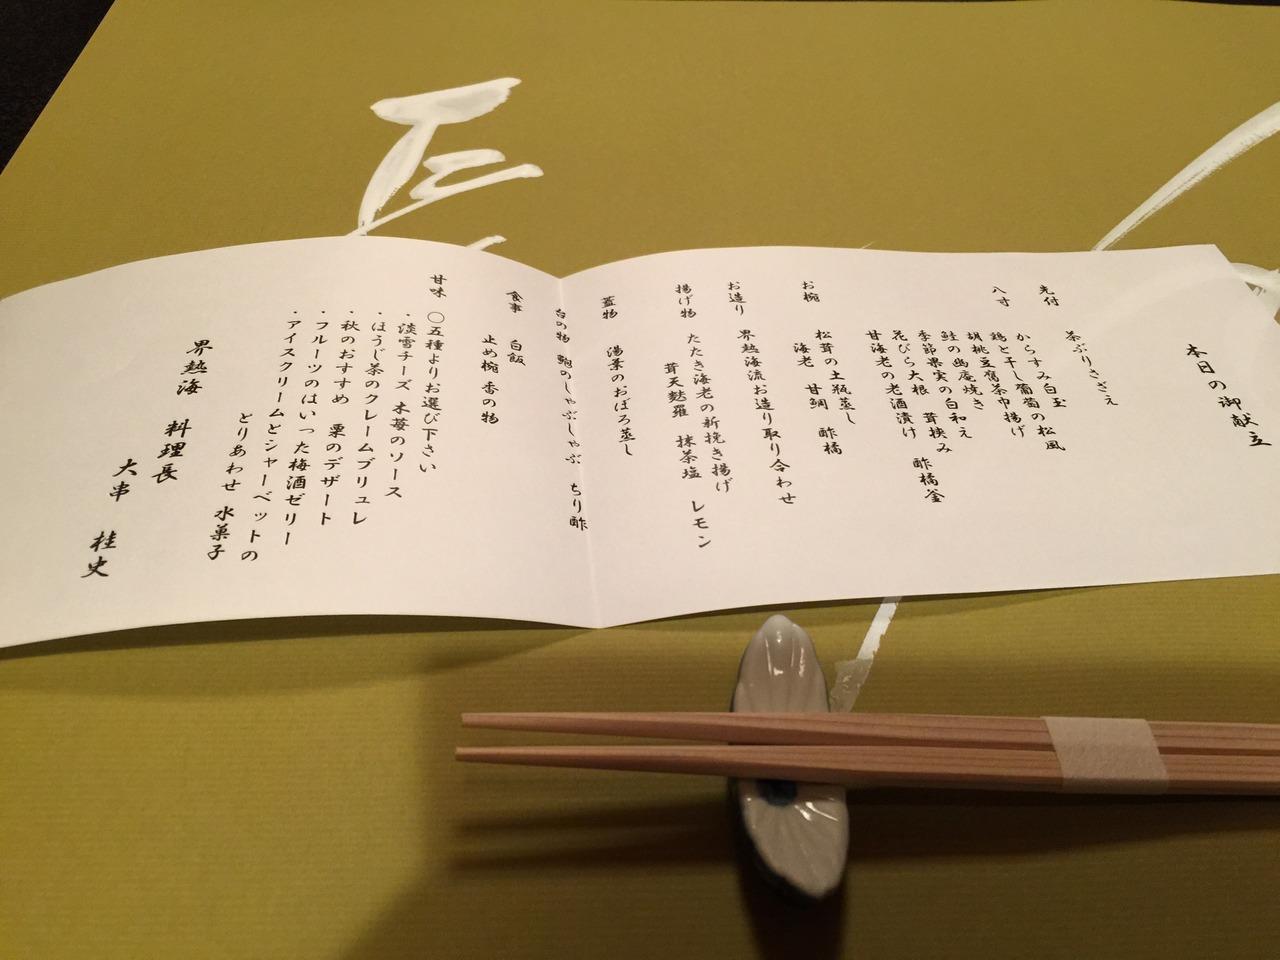 本日の御献立
先付 茶ぶりさざえ
八寸 からすみ白玉
鶏と干し葡萄の松風
胡桃豆腐茶巾揚げ
鮭の幽庵焼き
季節果実の白和え
花びら大根 茸挟み 酢橘釜
甘海老の老酒漬け
お椀 松茸の土瓶蒸し
海老 甘鯛 酢橘
お造り 界熱海流お造り取り合わせ
揚げ物 たたき海老の新挽き揚げ
茸天麩羅 抹茶塩 レモン
蓋物 湯葉のおぼろ蒸し
台の物 鮑のしゃぶしゃぶ ちり酢
食事 白飯
止め椀 香の物
甘味 〇五種よりお選び下さい
・淡雪チーズ 木苺のソース
・ほうじ茶のクレームブリュレ
・秋のおすすめ 栗のデザート
・フルーツのはいった梅酒ゼリー
・アイスクリームとシャーベットの
とりあわせ 水菓子
界熱海 料理長
大串 桂史